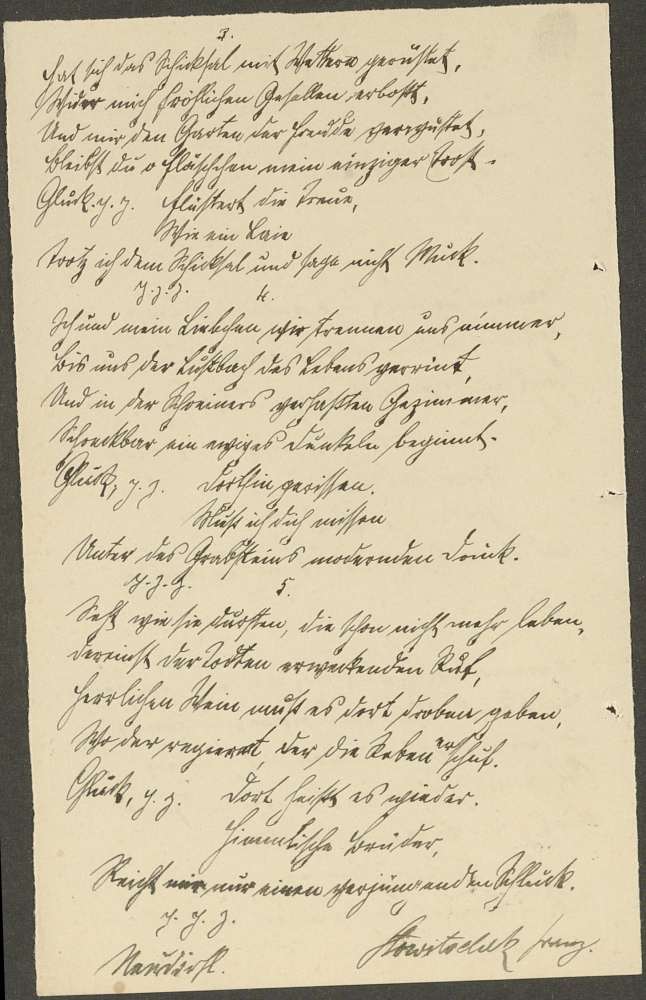 3.
Hat sich das Schicksal mit Wettern gerüstet,
Wider mich fröhlichen Gesellen erbost,
Und mir den Garten der Freude verwüstet,
Bleibst du o Fläschchen mein einziger Trost.
Gluck. j. j. flüstert die Treue,
Wie ein Laie
Trotz ich dem Schicksal und sage nicht Muck.
j. j. j.
4.
Ich und mein Liebchen wir trennen uns nimmer,
Bis uns der Lustbach des Lebens verrinnt,
Und in der Schreiners verhaßten Gezimmer,
Schreckbar ein ewiges Dunkeln beginnt.
Gluck, j. j. Dorthin gerissen.
Muß ich dich missen
Unter des Grabsteins moderndem Druck.
j. j. j.
5.
Seht wie sie dursten, die schon nicht mehr leben,
Dereinst der Todten erweckenden Ruf,
Herrlichen Wein muß es dort droben geben,
Wo der regieret, der die Reben erschuf.
Gluck, j. j. Dort heißt es wieder.
Himmlische Brüder,
Reicht mir nur einen verjüngenden Schluck.
j. j. j.
Franz.